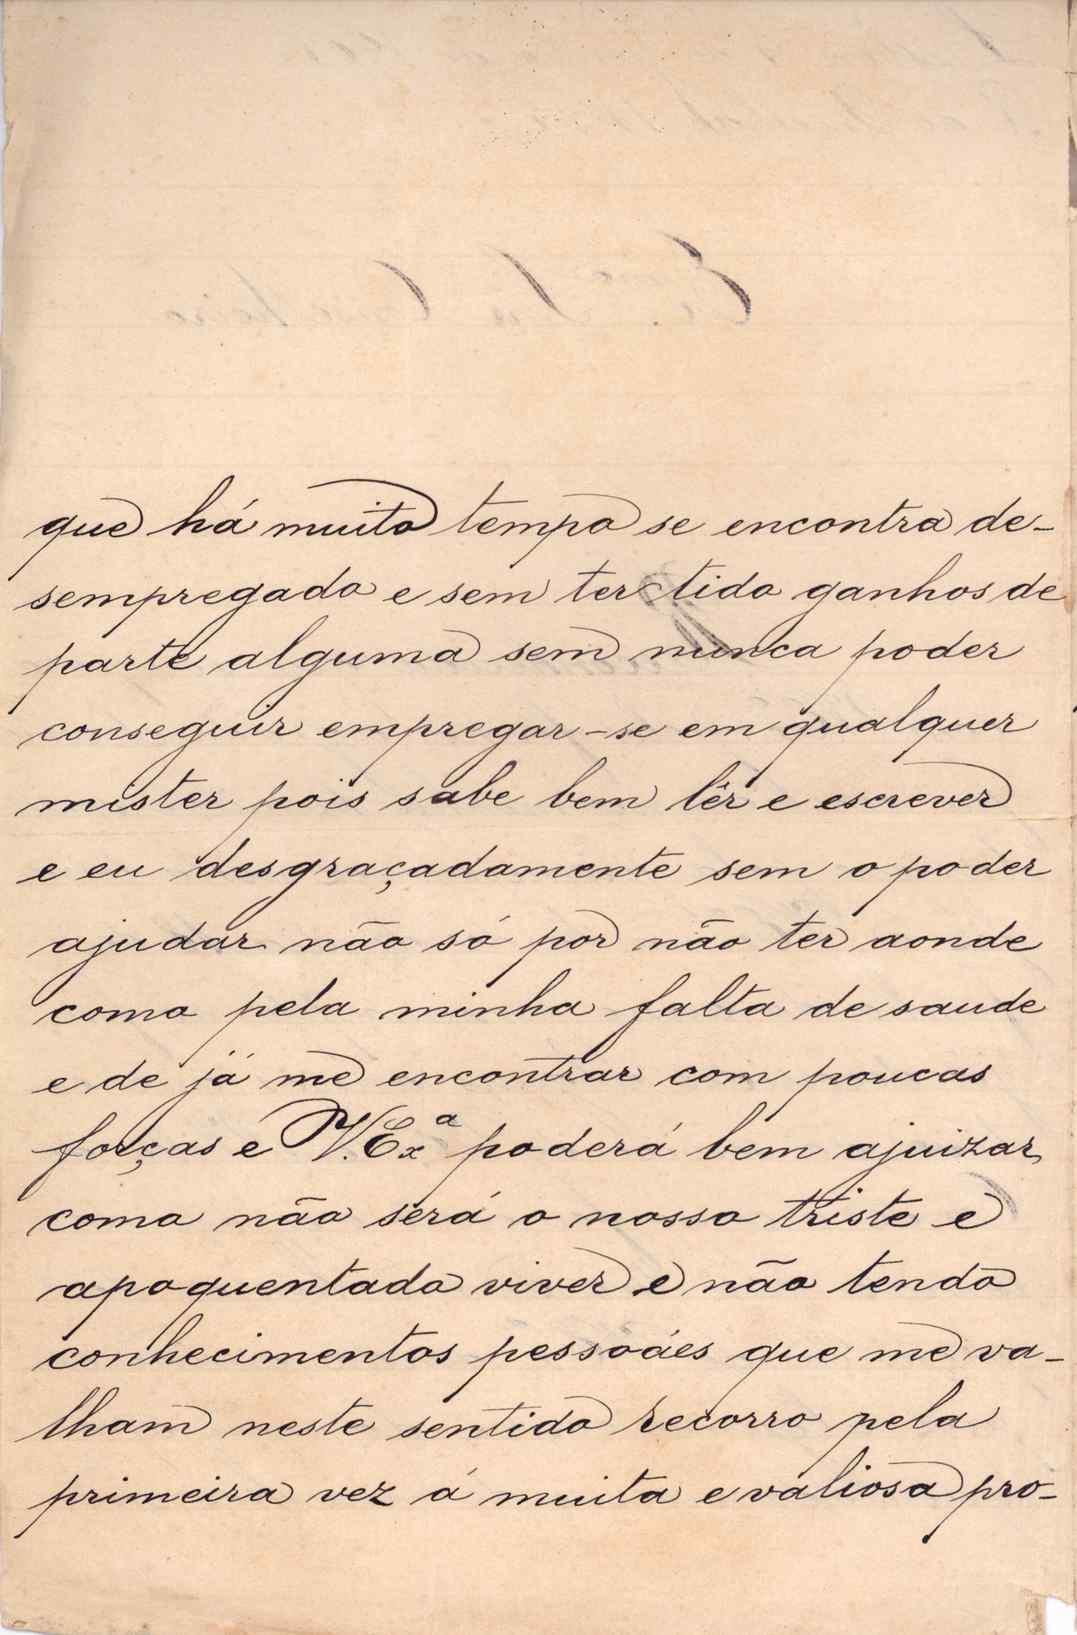 que há muito tempo se encontra de-
sempregado e sem ter tido ganhos de
parte alguma sem nunca poder
conseguir empregar-se em qualquer
mister pois sabe bem lêr e escrever
e eu desgraçadamente sem o poder
ajudar não só por não ter aonde
como pela minha falta de saude
e de já me encontrar com poucas
forças e V. Exª poderá bem ajuizar
como não será o nosso triste e
apoquentado viver e não tendo
conhecimentos pessoáes que me va-
lham neste sentido recorro pela
primeira vez á muita e valiosa pro-